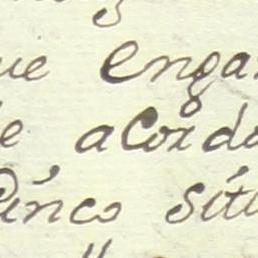 ue engar
e acorda
Cinco sítu